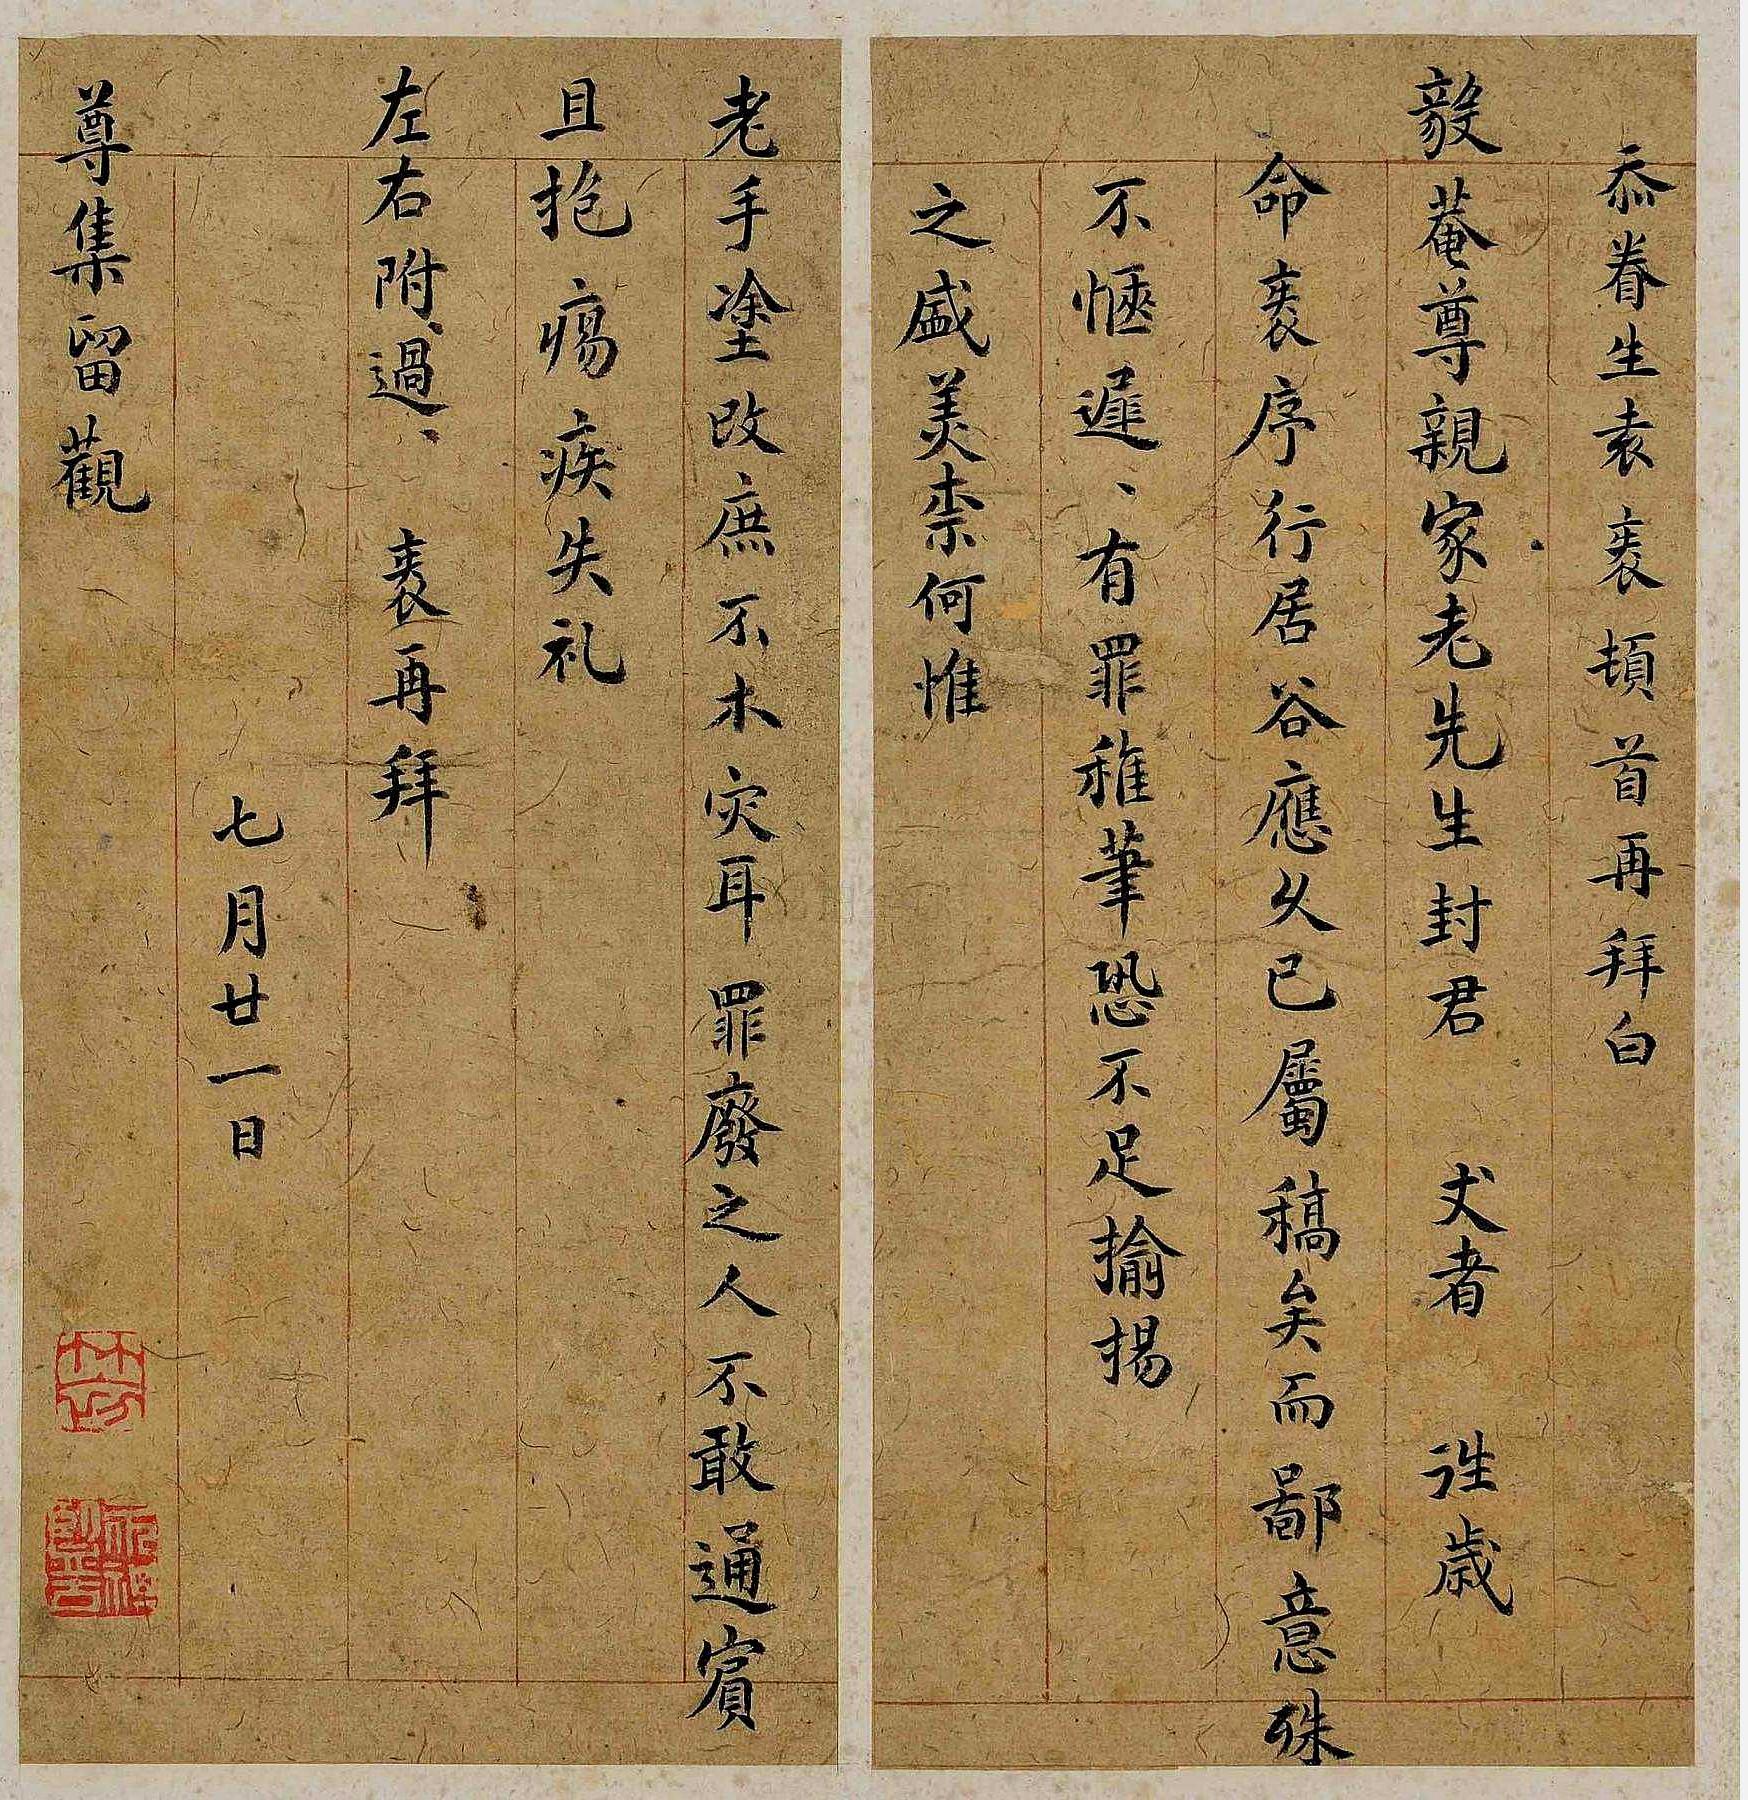 忝眷生袁袠頓首再拜白
毅菴尊親家老先生封君 丈者 詿歳
命袠序行居谷應久已屬稿矣而鄙意殊
不愜遲、有罪稚筆恐不足揄揚
之盛美柰何惟
老手塗改庶不木灾耳罪廢之人不敢通賓
且抱瘍疾失礼
左右附、過、 袠再拜
七月廿一日
尊集留觀